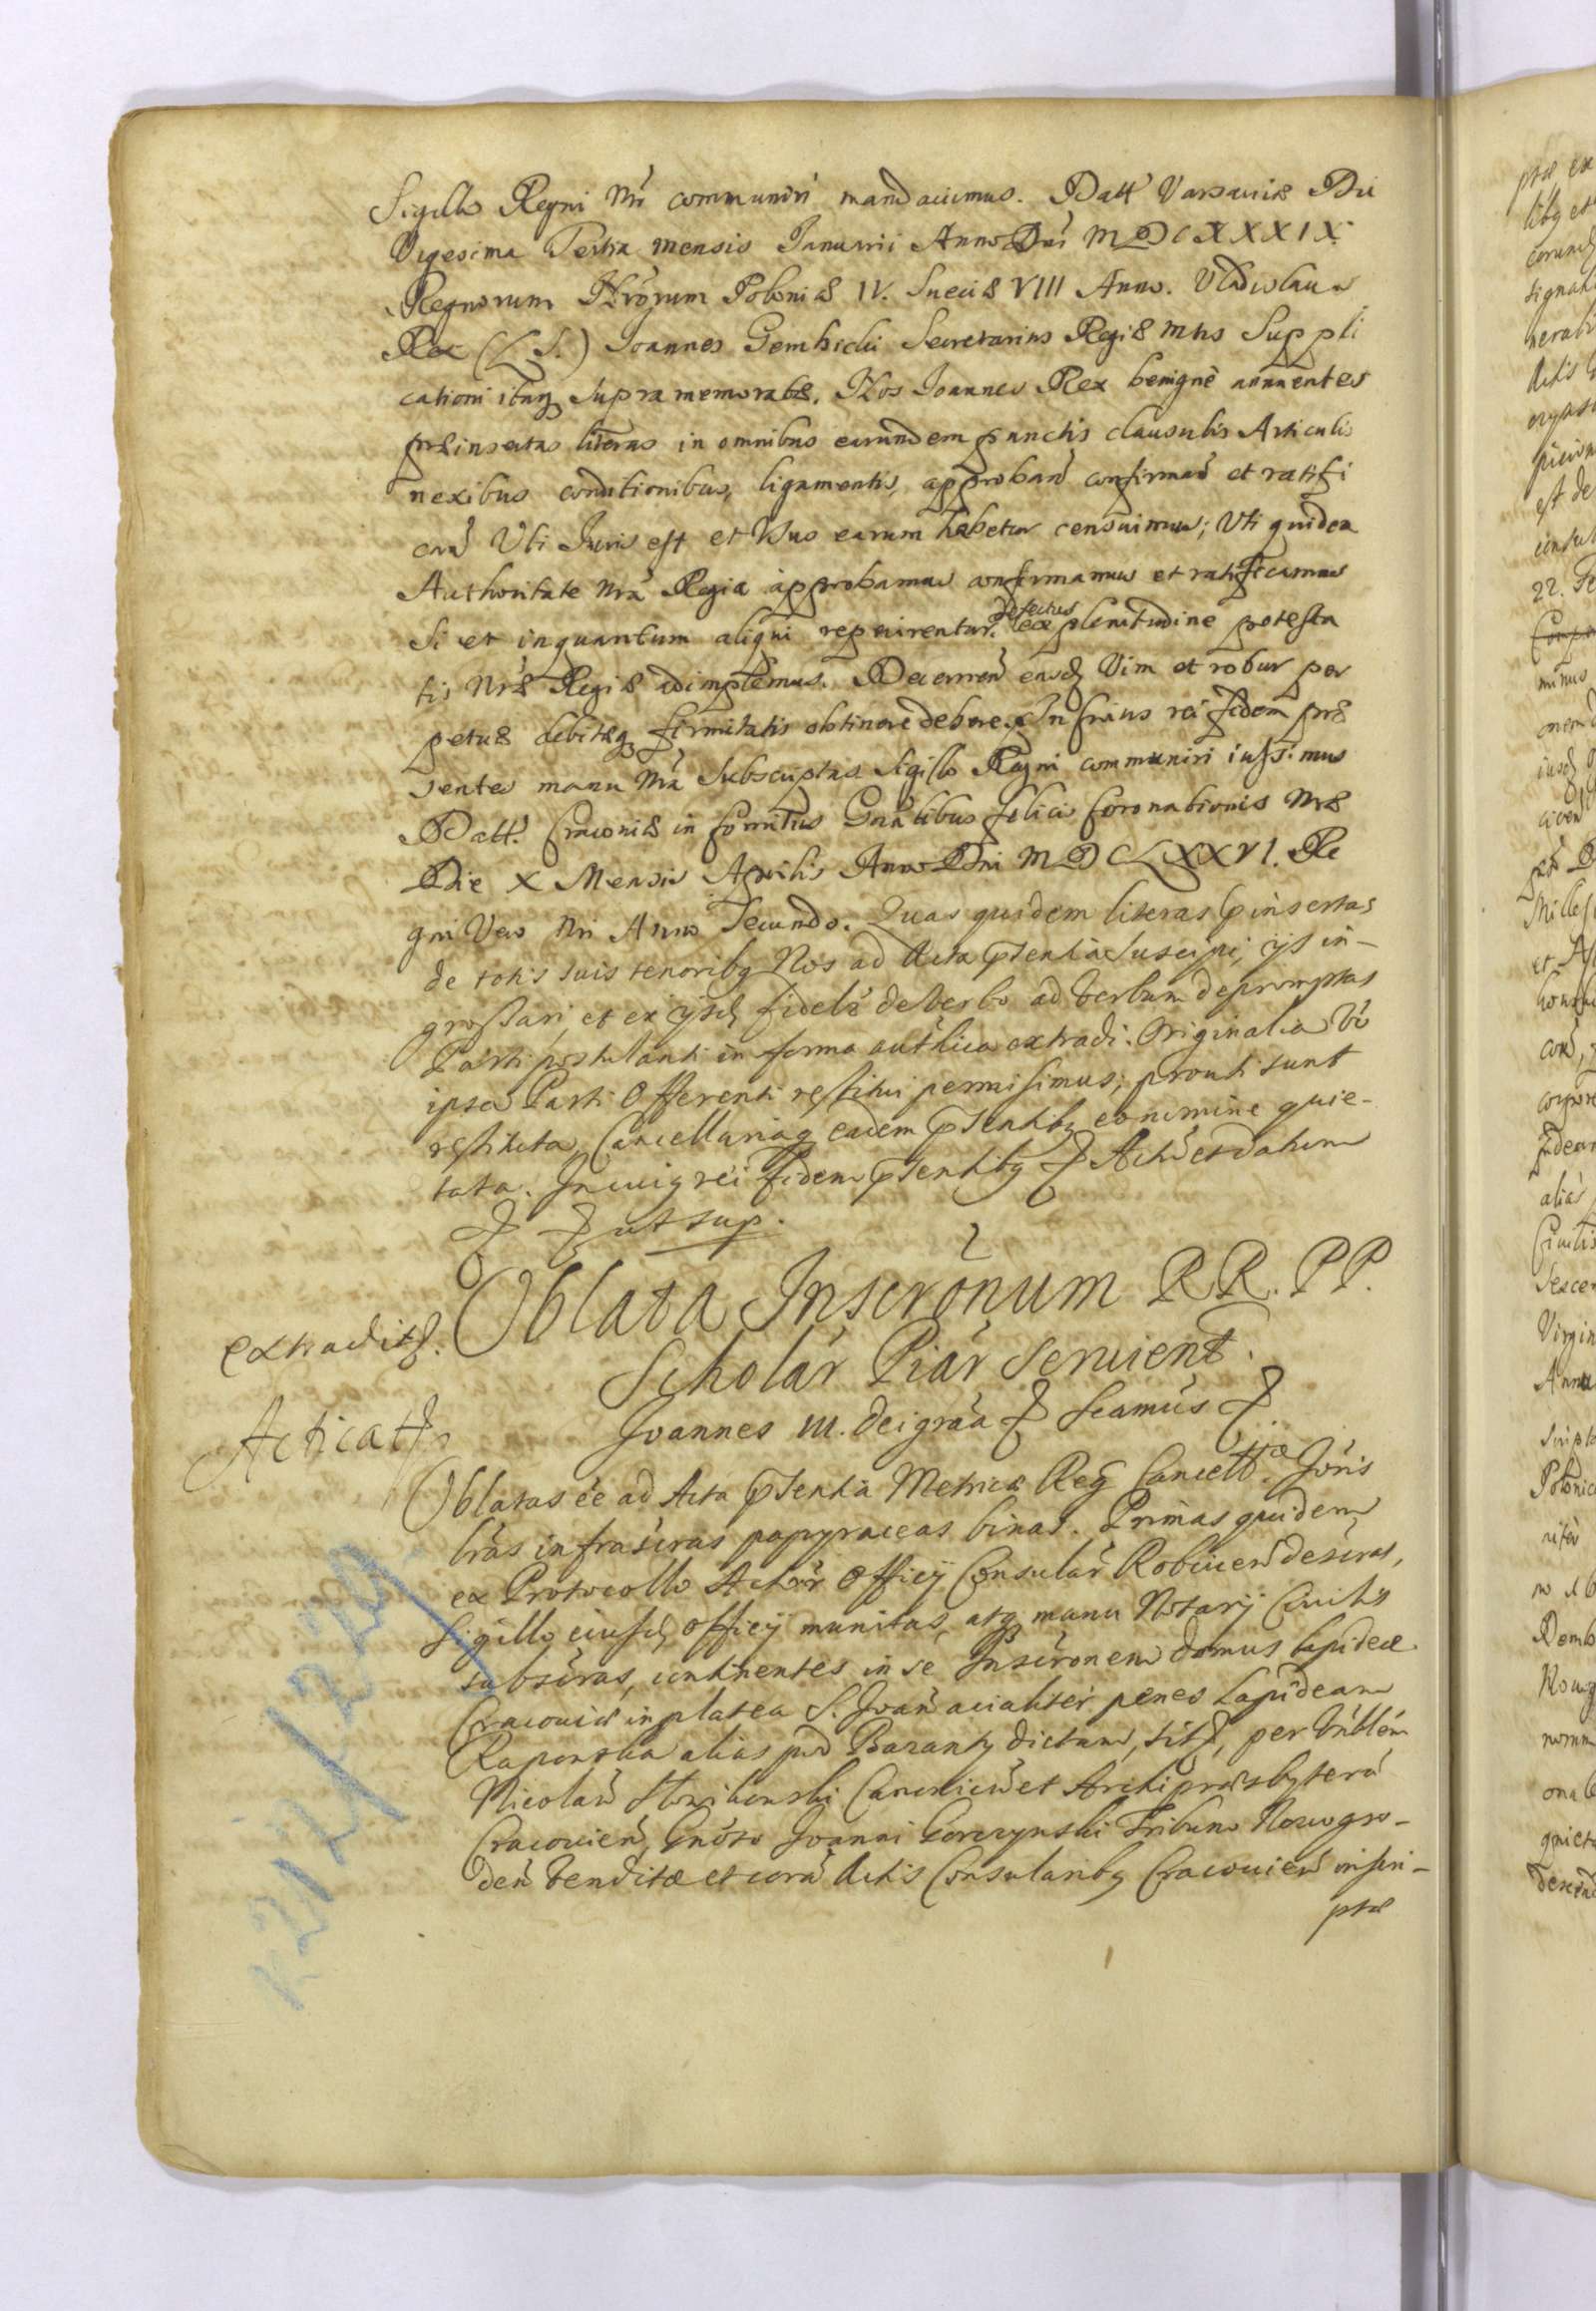 Sigillo Regni Nri communiri mandavimus. Datt Varsaviæ Die
Vigesima Tertia mensis Januarii Anno Dni MDCXXXIX
Regnorum Nrorum Poloniæ IV. Sueciæ VIII Anno. Vladislaus
Rex (L S.) Joannes Gembicki Secretarius Regiæ Mtis Suppli
cationi itaq supra memoratæ. Nos Joannes Rex benignè annuentes
præinsertas literas in omnibus earundem punctis clausulis Articulis
nexibus conditionibus, ligamentis, approband confirmand et ratifi
cand Uti Juris est et Usus earum habetur censuimus; Uti quidem
Authoritate Nrã Regia approbamus confirmamus et ratificamus
Si et inquantum aliqui reperirentur defectus ex plenitudine potesta
tis Nræ Regiæ adimplemus. Decernen easd Vim et robur per
petuæ debitæq firmitatis obtinere debere. In cuius rei fidem præ
sentes manu Nrã Subscriptas Sigillo Regni communiri iussimus
Datt. Cracoviæ in Comitiis Gnalibus felicis Coronationis Nræ
Die X Mensis Aprilis Anno Dni MDCLXXVI. Re
gni Vero Nri Anno Secundo. Quas quidem literas pinsertas
de totis suis tenoribq Nos ad Acta pntia suscipi, ijs in-
grossari, et ex ijsd fidelr de Verbo ad Verbum depromptas
Parti postulanti in forma authca extradi. Originalia Vo
ipsa Parti Offerenti restitui permisimus; prout sunt
restituta, Cancellariaq eadem pntibq eo nomine quie-
tata. In cuiq rei fidem pntibq & Actu et datum
& & ut sup.
Oblata Inscronum RR. PP.
extradit.
Scholar Piar servient.
Joannes III. Dei gra & Scamus &.
Acticat
Oblatas ee ad Acta pntia Metricæ Reg Cancellæ Joris
lras infrascras papyraceas binas. Primas quidem
ex Protocollo Actor Officij Consular descras,
Sigillo eiusd Officij munitas, atq manu Notarij Civilis
subscras, continentes in se Inscronem domus lapideæ
Cracoviæ in platea S. Joan acialiter penes Lapideam
alias pod Barany dictam, sit, per Vnblem
Nicolau Canonicu et Archipræsbyteru
Cracovien, Gnoso Joanni Gorczynski Tribuno Nowogro-
den Venditæ et cora Actis Consularibq Cracovien inscri-
ptæ